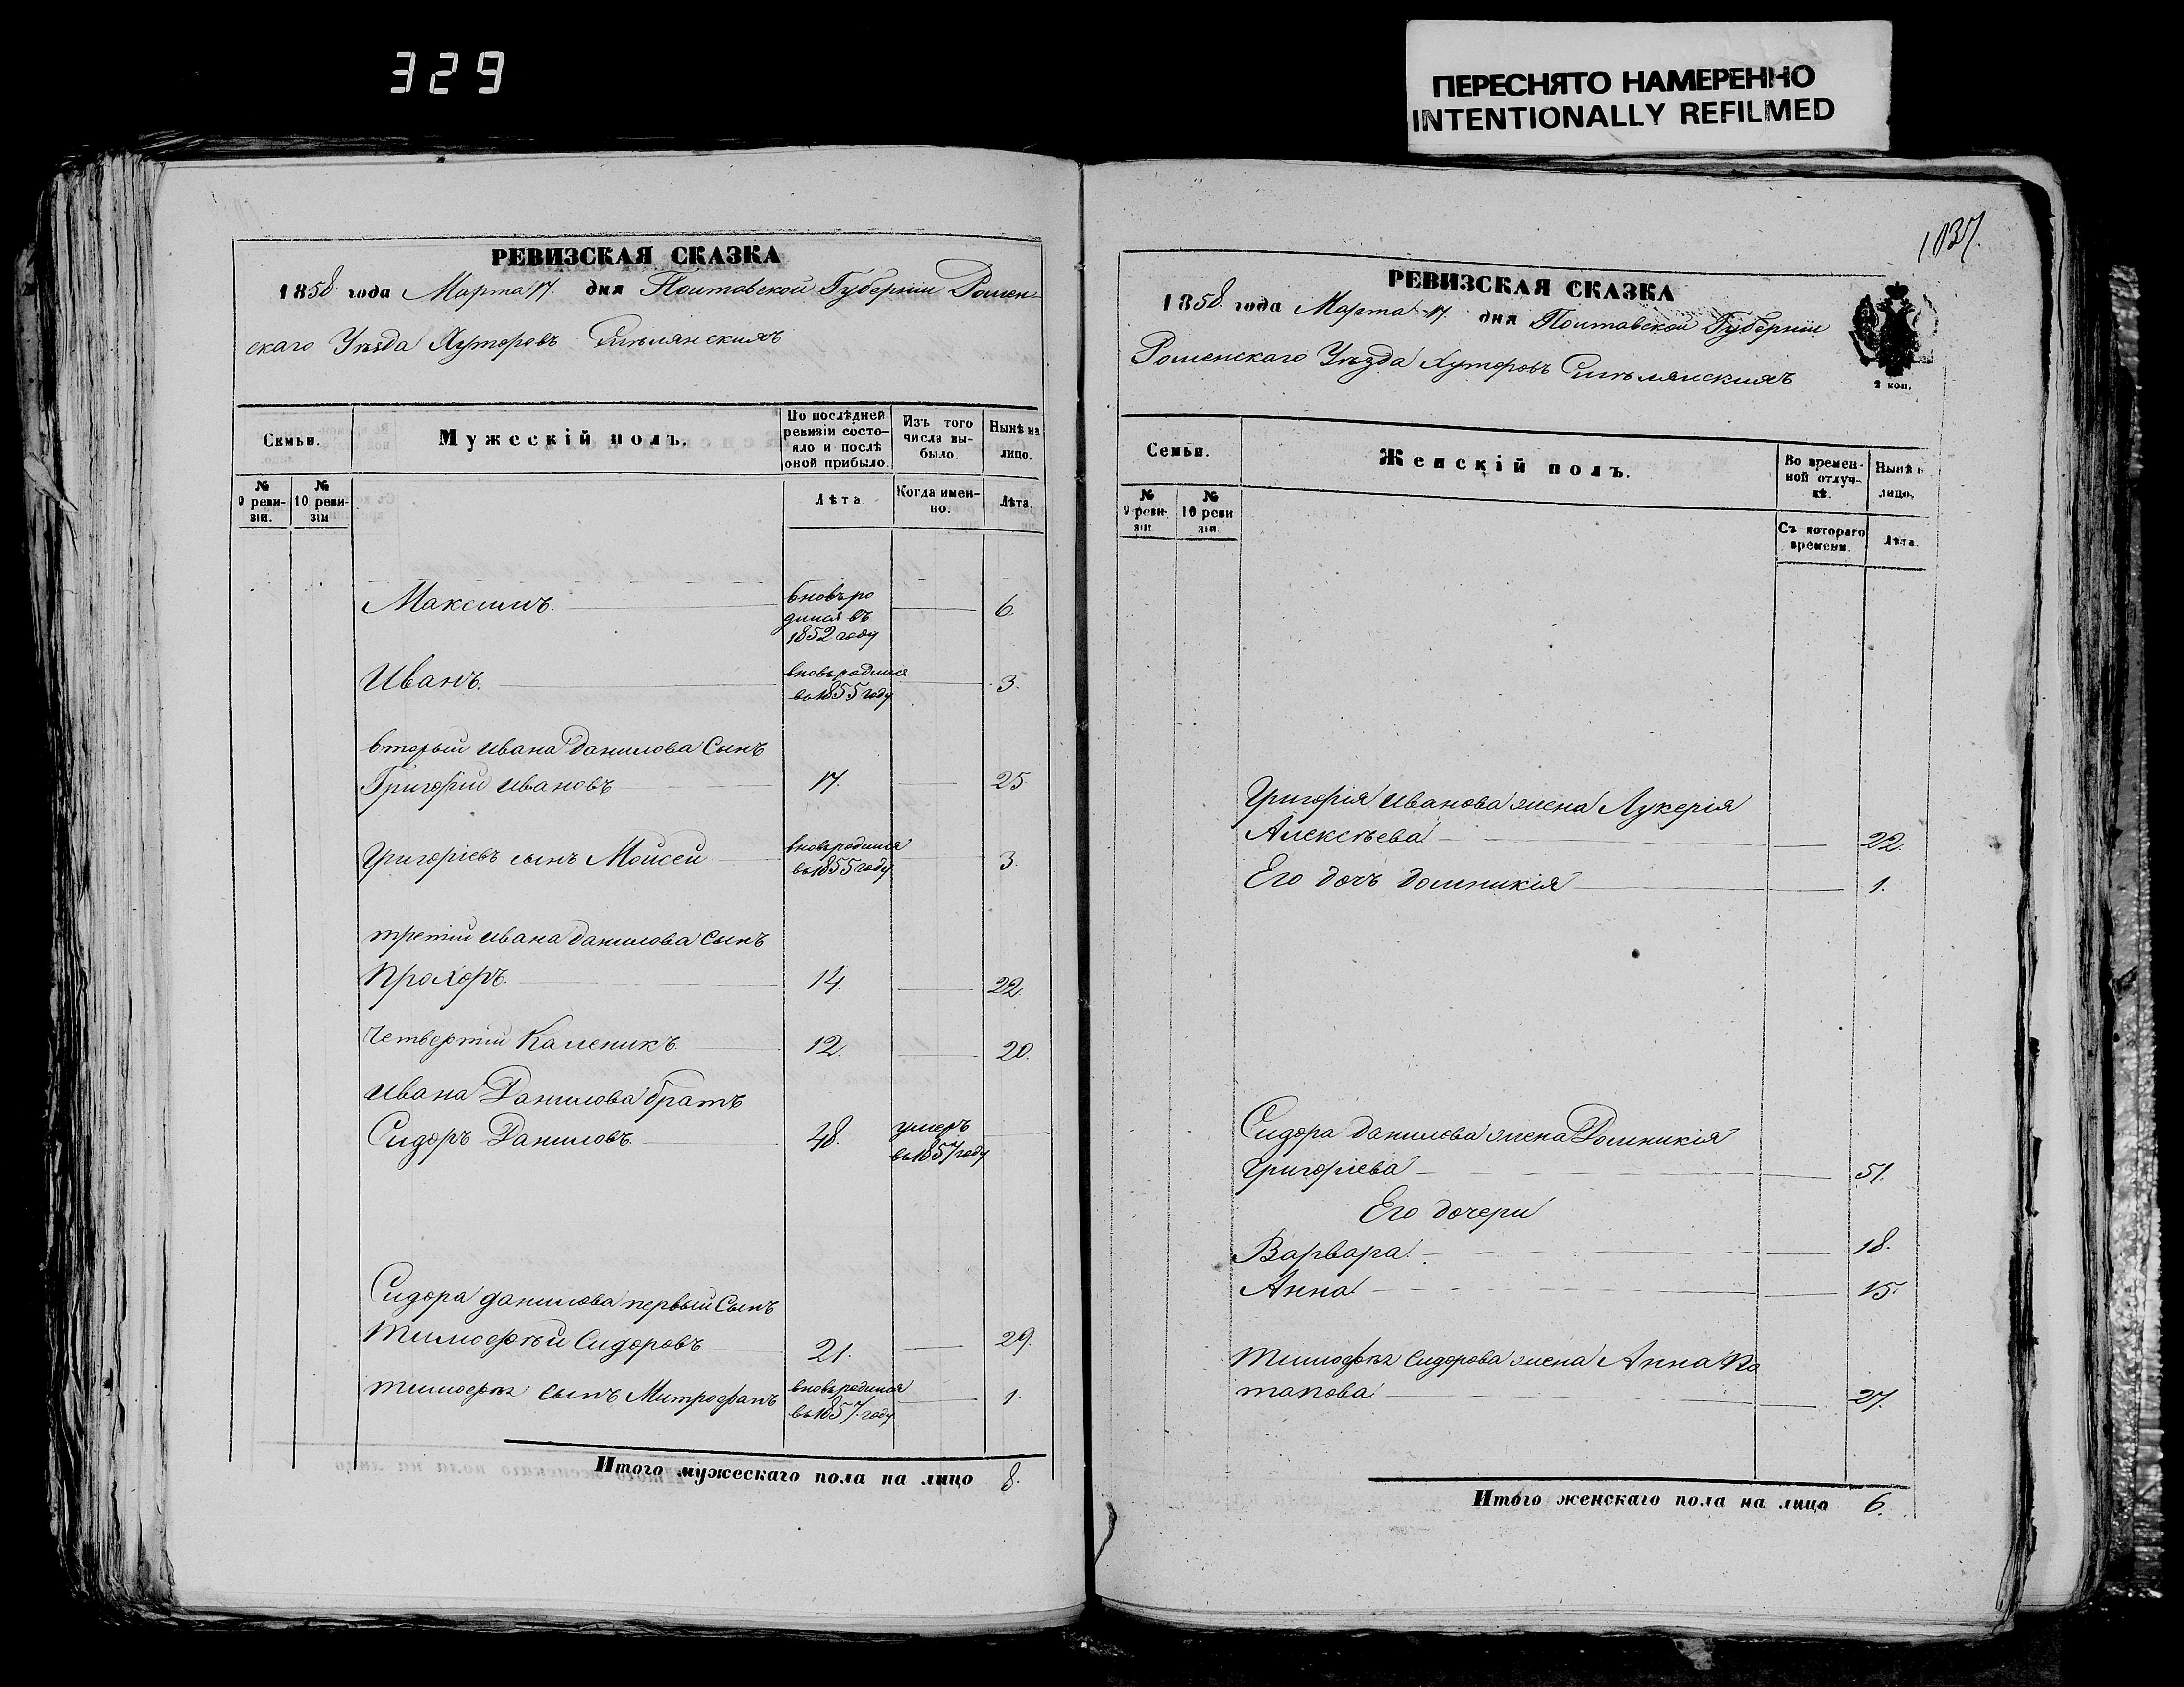 329
ПЕРЕСНЯТО НАМЕРЕННО
INTENTIONALLY REFILMED
РЕВИЗСКАЯ СКАЗКА
1858 года Марта 17. дня Полтавской Губерніи Ромен-
скаго Уѣзда Хуторовъ
Семьи.
Мужескій полъ.
По послѣдней ревизіи состо-яло и послѣ оной прибыло.
Изъ того числа вы-было.
Нынѣ на лицо.
№ 9 реви-зіи.
№ 10 реви-зіи
Лѣта
Когда имен-но.
Лѣта.
Максимъ. вновь ро
дился въ 6.
1852 году
Иванъ. вновь родился 3.
въ 1855 году
вторый Ивана Данилова Сынъ
Григорій Ивановъ 17. 25
Григоріевъ сынъ Моисей вновь родился 3.
въ 1855 году
третій Ивана Данилова Сынъ
Прохоръ. 14. 22.
Четвертій Каленикъ 12. 20.
Ивана Данилова братъ
Сидоръ Даниловъ 48. умеръ
въ 1857 году
Сидора Данилова первый Сынъ
Тимофѣй Сидоровъ 21. 29.
Тимофѣя сынъ Митрофанъ вновь родился 1.
въ 1857. году
Итого мужескаго пола на лицо 8.
1037.
РЕВИЗСКАЯ СКАЗКА
1858 года Марта 17. дня Полтавской Губерніи
Роменскаго Уѣзда Хуторовъ
2 коп.
Семьи.
Женскій полъ.
Во времен-ной отлуч-кѣ.
Нынѣ н лицо.
№ 9 реви-зіи
№ 10 реви зіи.
Съ котораго времени.
Лѣта.
Григорія Иванова жена Лукерія
Алексѣева 22.
Его дочь Домникія 1.
Сидора Данилова жена Домникія
Григоріева 51.
Его дочери
Варвара 18.
Анна 15.
Тимофѣя Сидорова жена Анна По
тапова 27.
Итого женскаго пола на лицо 6.